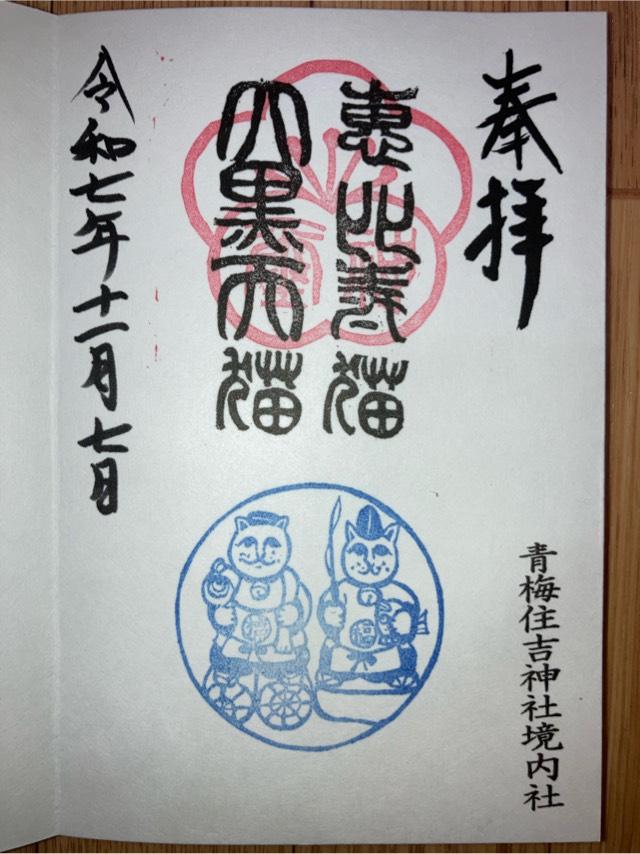 奉拝
恵比寿猫
大黒天猫
令和七年十一月七日
青梅住吉神社境内社